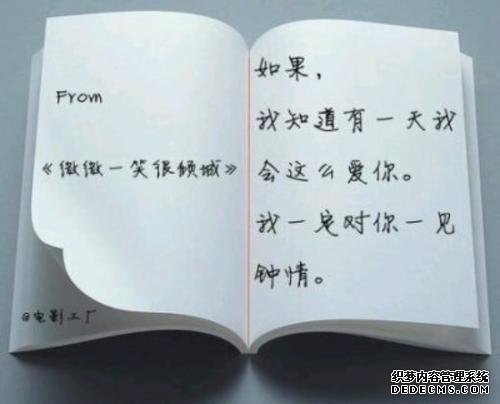 From
《微微一笑很倾城》
@电影工厂
如果，
我知道有一天我
会这么爱你。
我一定对你一见
钟情。
织梦内容管理系统
DEDECMS.COM